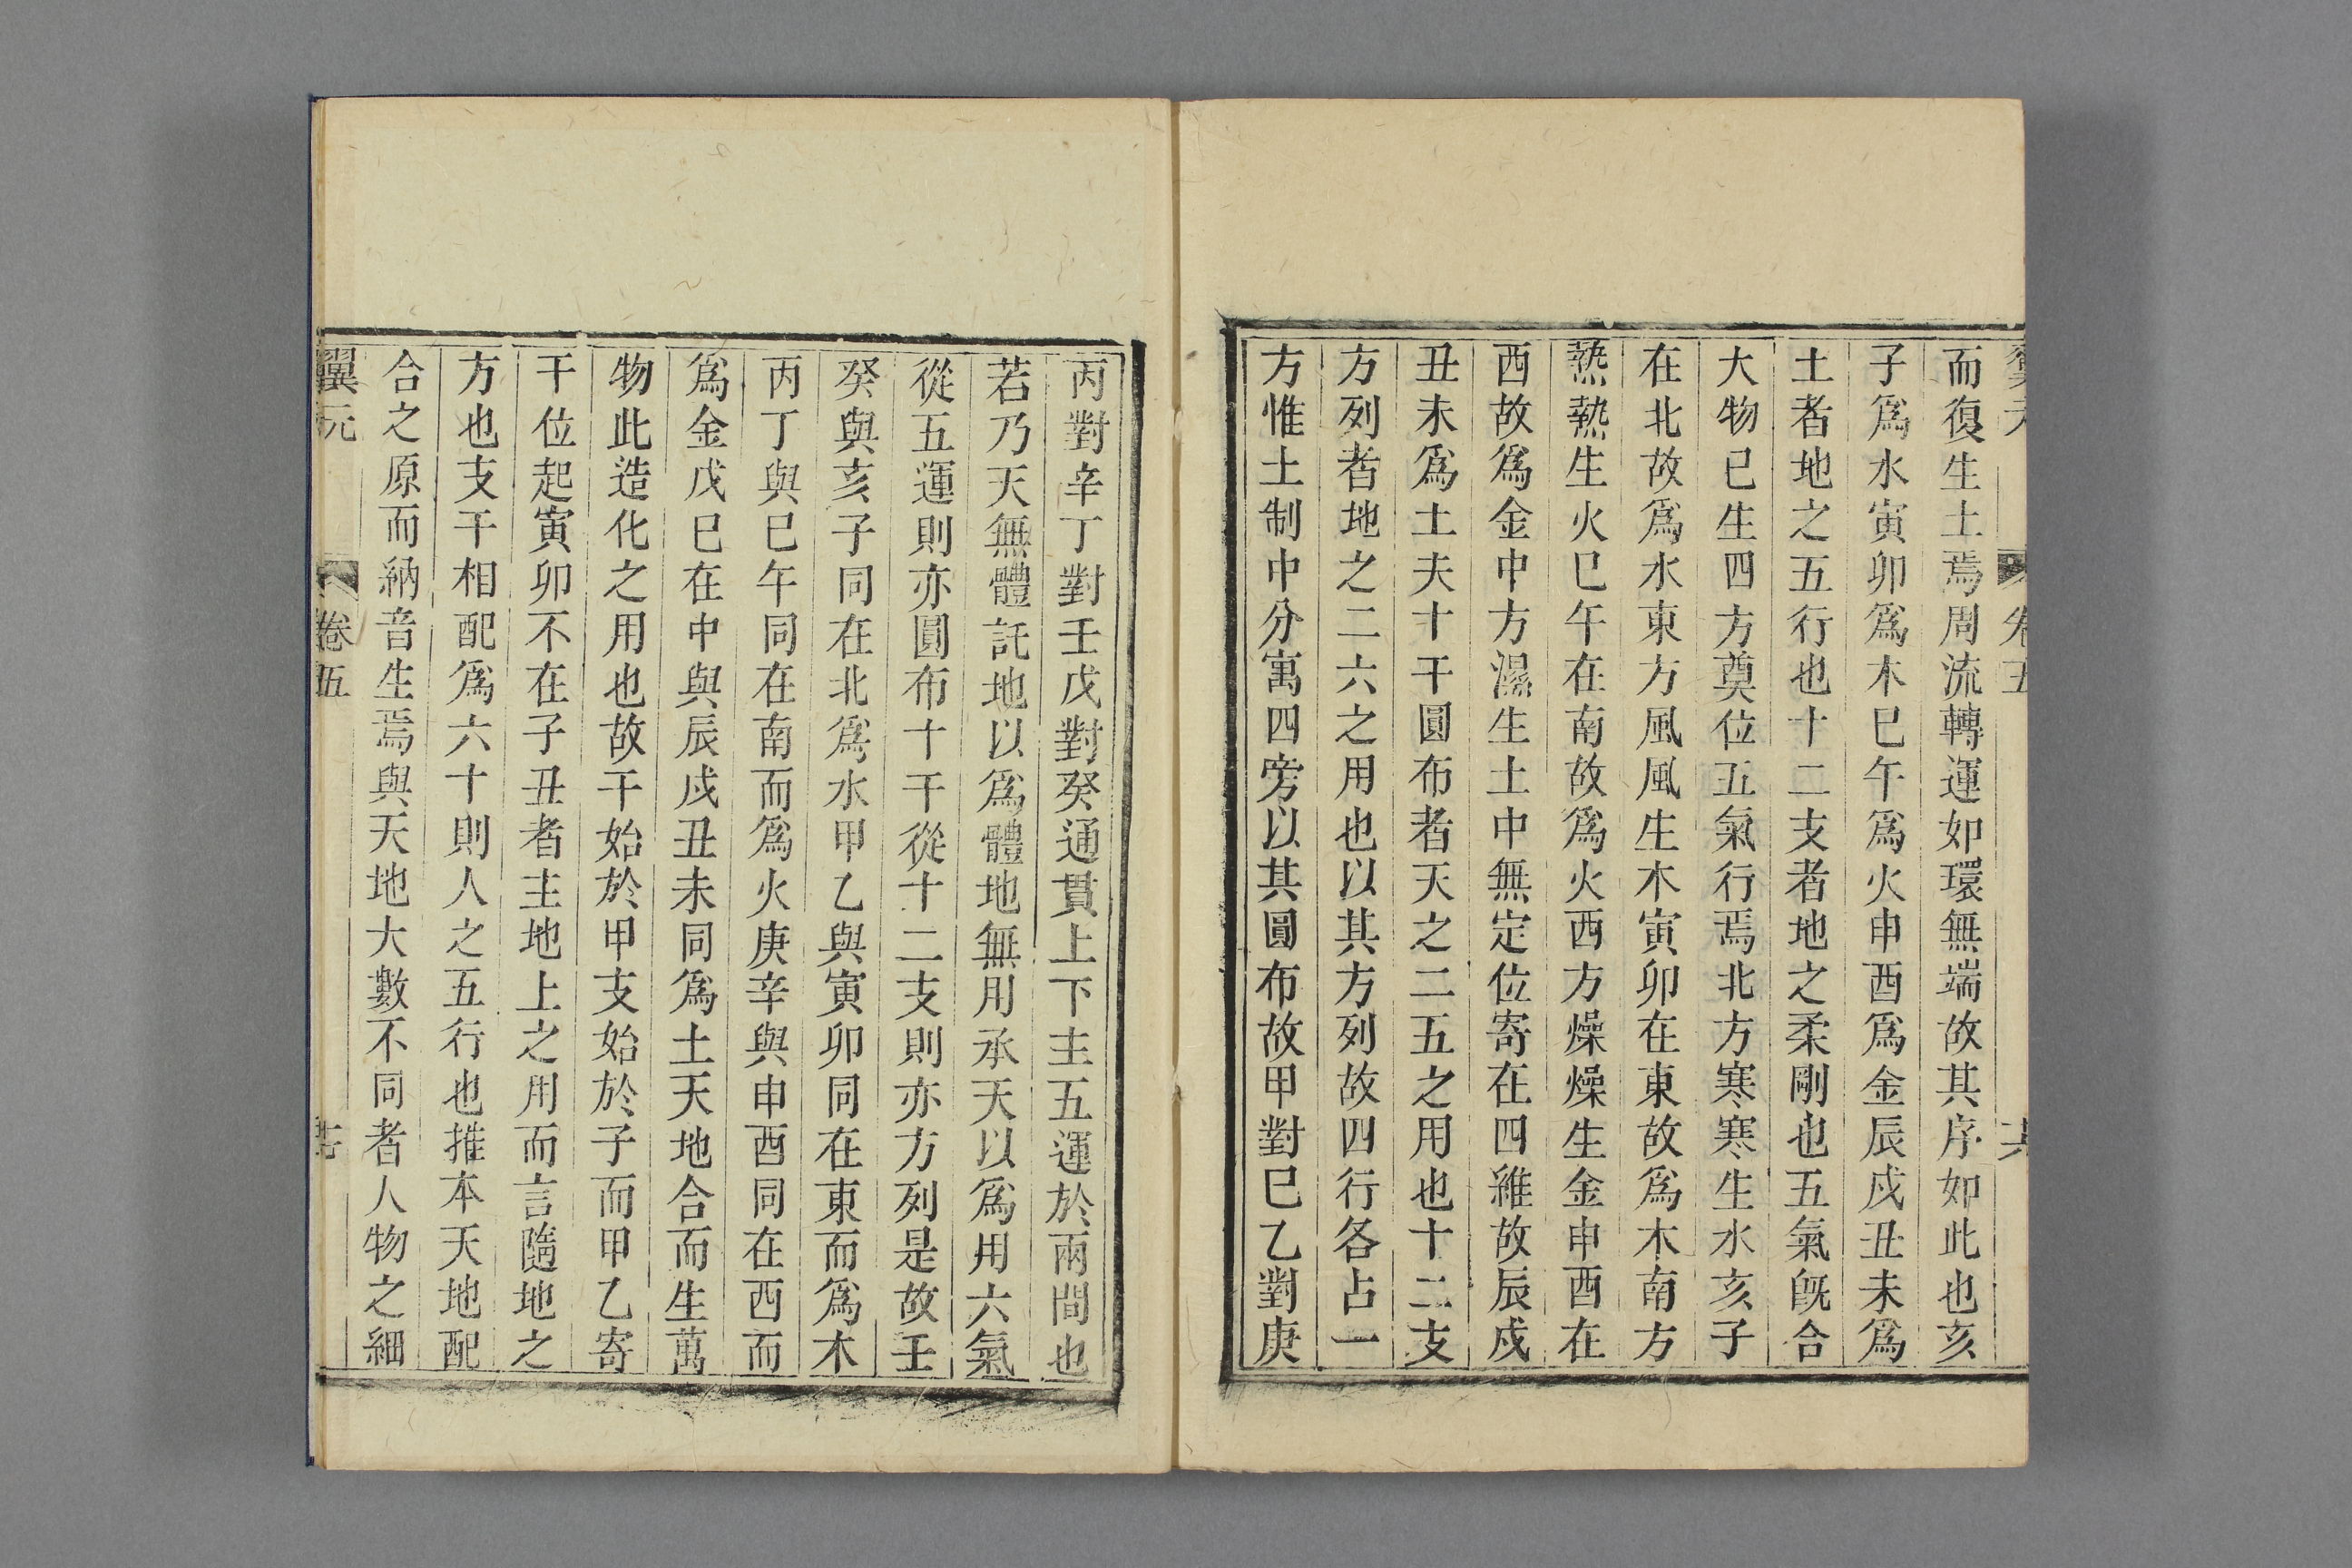 而復生土焉周流轉運如環無端故其序如此也亥
子爲水寅卯爲木巳午爲火申酉爲金辰戌丑未爲
土者地之五行也十二支者地之柔剛也五氣旣合
大物已生四方奠位五氣行焉北方寒寒生水亥子
在北故爲水東方風風生木寅卯在東故爲木南方
熱熱生火巳午在南故爲火西方燥燥生金申酉在
西故爲金中方濕生土中無定位寄在四維故辰戌
丑未爲土夫十干圓布者天之二五之用也十二支
方列者地之二六之用也以其方列故四行各占一
方惟土制中分寓四旁以其圓布故甲對巳乙對庚
丙對辛丁對壬戊對癸通貫上下主五運於兩間也
若乃天無體託地以爲體地無用承天以爲用六氣
從五運則亦圓布十干從十二支則亦方列是故壬
癸與亥子同在北爲水甲乙與寅卯同在東而爲木
丙丁與巳午同在南而爲火庚辛與申酉同在西而
爲金戊巳在中與辰戌丑未同爲土天地合而生萬
物此造化之用也故干始於甲支始於子而甲乙寄
干位起寅卯不在子丑者主地上之用而言隨地之
方也支干相配爲六十則人之五行也推本天地配
合之原而納音生焉與天地大數不同者人物之細
翼元 卷五